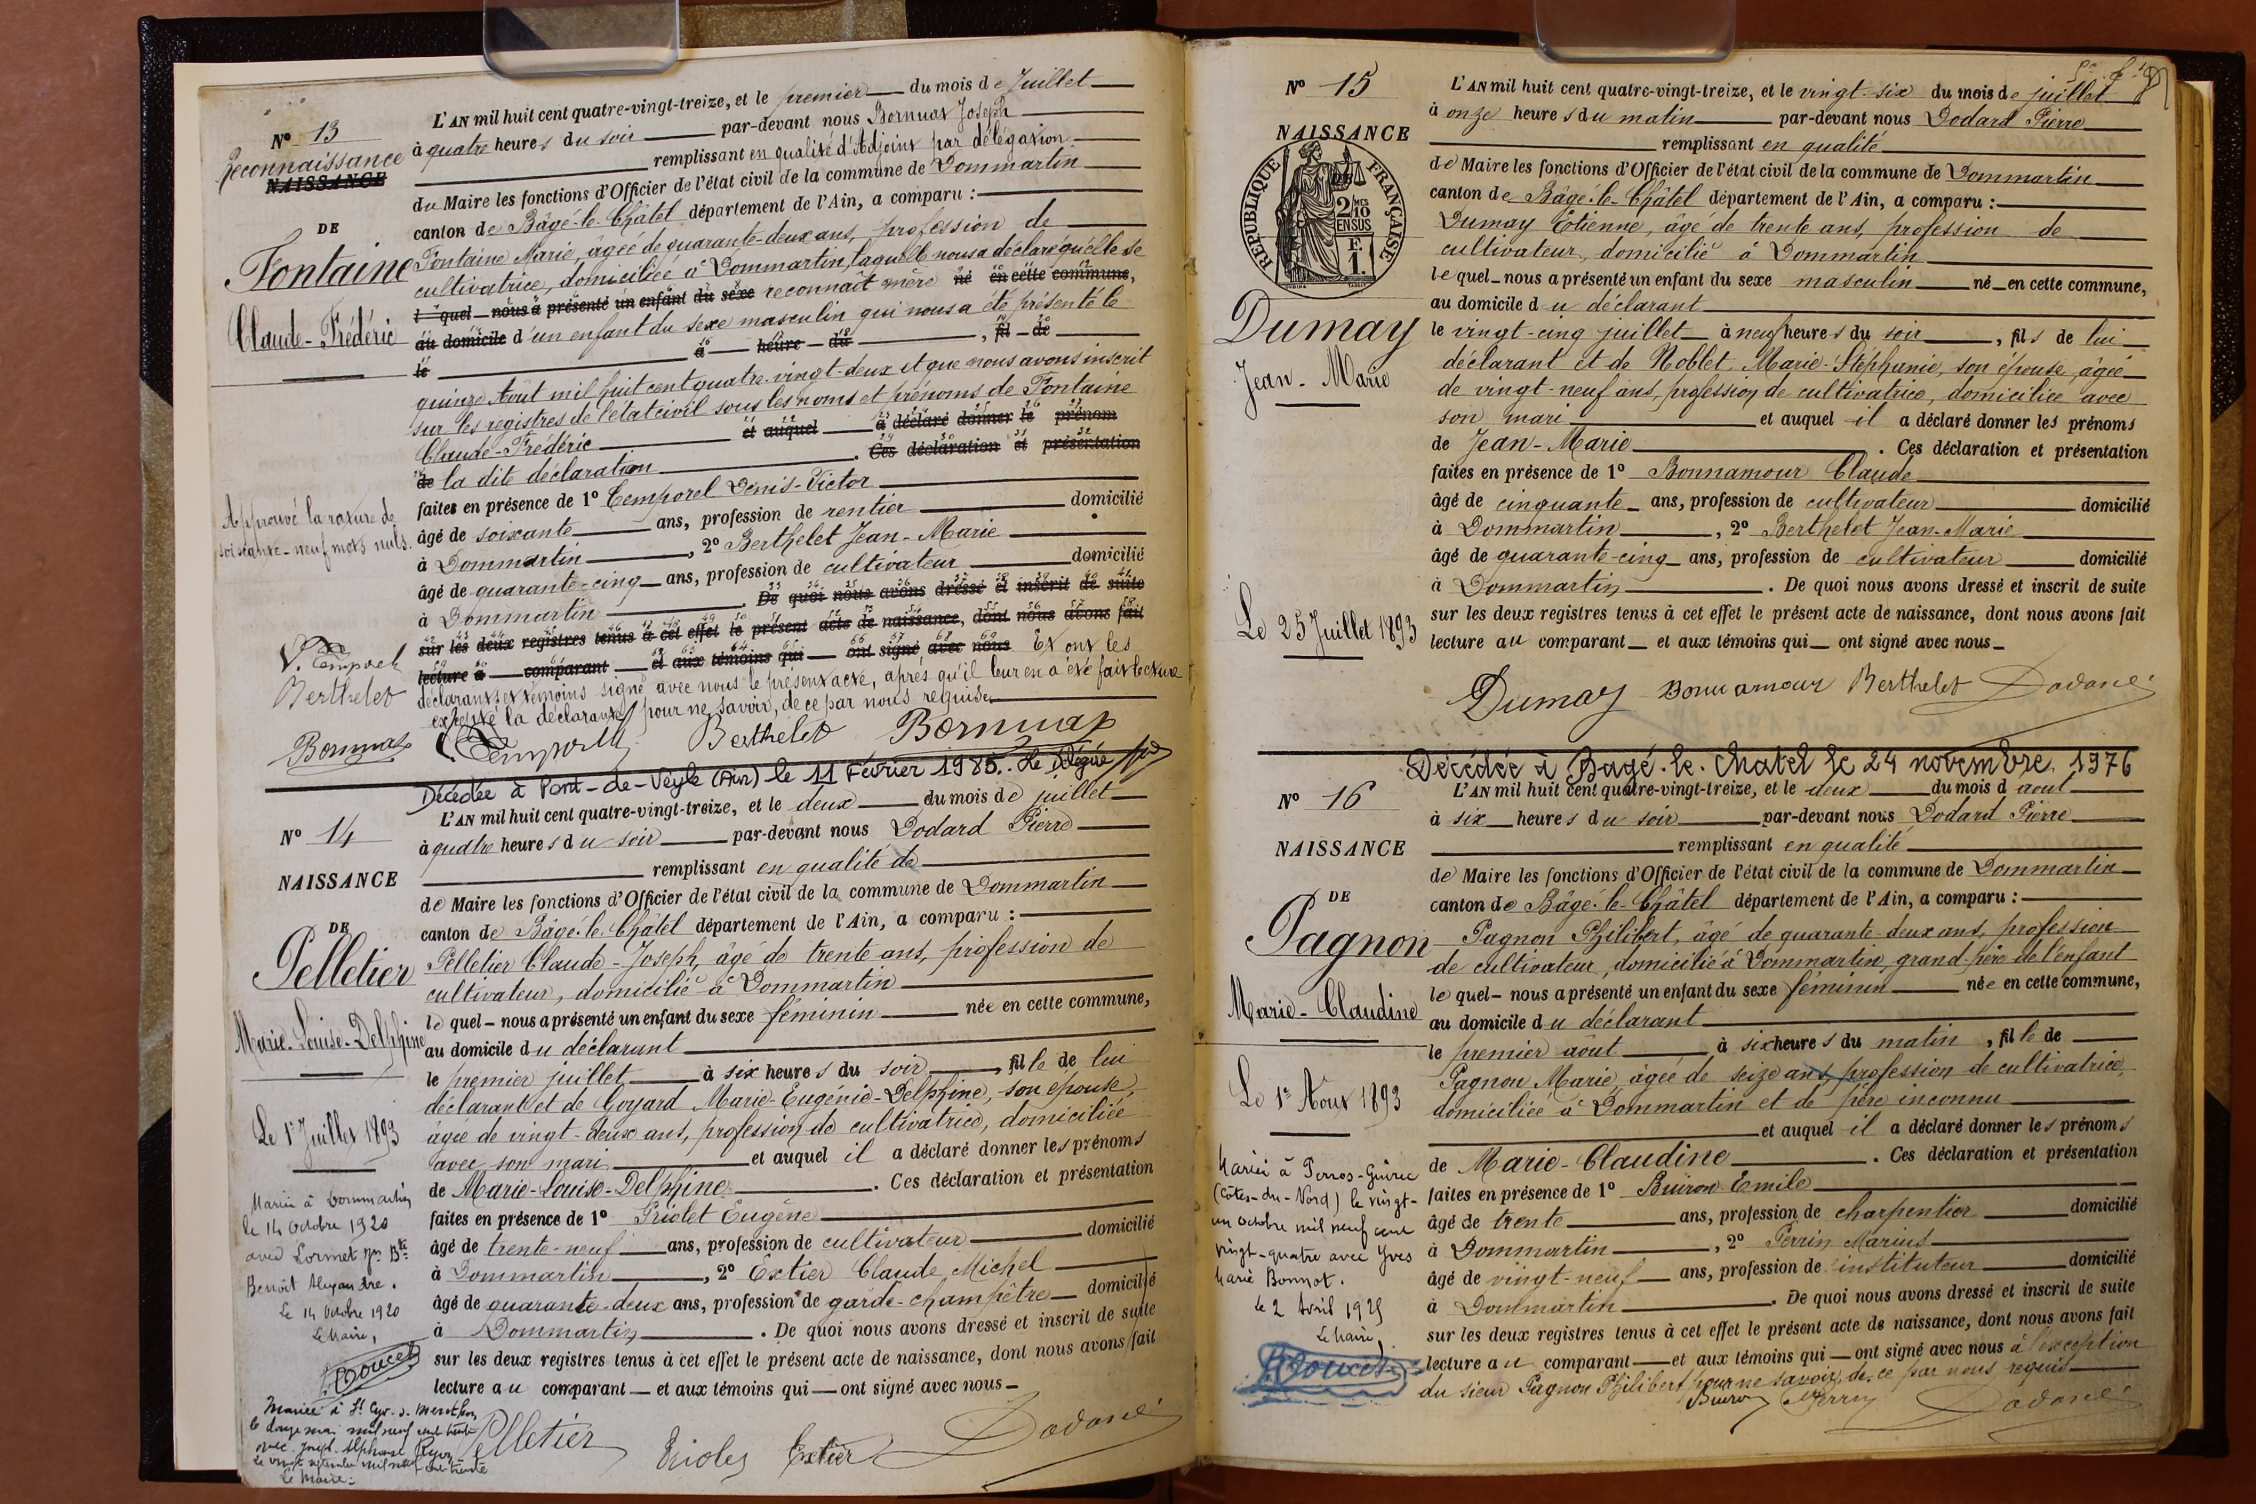 N° 13
Reconnaissance
NAISSANCE
DE
Fontaine
Claude-Frédéric
Approuvé la rature de
soixante-neuf mots nuls.
V. Temporel
Berthelet
L'AN mil huit cent quatre-vingt-treize, et le premier du mois de Juillet
à quatre heures du soir par-devant nous Joseph
remplissant en qualité d'Adjoint par délégation
du Maire les fonctions d'Officier de l'état civil de la commune de Dommartin
canton de Bâgé-le-Châtel département de l'Ain, a comparu :
Fontaine Marie, agée de quarante-deux ans, profession de
cultivatrice, domiciliée à Dommartin, laquelle nous a déclaré qu'elle se
l quel nous a présenté un enfant du sexe reconnaît mère né en cette commune,
au domicile d'un enfant du sexe masculin qui nous a été présenté le
le à heure du , fil de
quinze Août mil huit cent quatre-vingt-deux et que nous avons inscrit
sur les registres de l'état civil sous les noms et prénoms de Fontaine
Claude-Frédéric et auquel a déclaré donner le prénom
de la dite déclaration . Ces déclaration et présentation
faites en présence de 1° Temporel Denis-Victor
âgé de soixante ans, profession de rentier domicilié
à Dommartin, 2° Berthelet Jean-Marie
âgé de quarante-cinq ans, profession de cultivateur domicilié
à Dommartin . De quoi nous avons dressé et inscrit de suite
sur les deux registres tenus à cet effet le présent acte de naissance, dont nous avons fait
lecture a comparant et aux témoins qui ont signé avec nous Et ont les
déclarants et témoins signé avec nous le présent acte, après qu'il leur en a été fait lecture
excepté la déclarante pour ne savoir, de ce par nous requise
Temporel Berthelet
Décédée à Pont-de-Veyle (Ain) le 11 Février 1985. Le Délégué
N° 14
NAISSANCE
DE
Pelletier
Marie-Louise-Delphine
Le 1er Juillet 1893
Mariée à Dommartin
le 14 Octobre 1920
avec Lormet
Benoît Alexandre.
Le 14 Octobre 1920
Le Maire,
Doucet
Mariée à St Cyr s. Menthon
le douze mai mil neuf cent trente
avec Joseph Alphonse
Le Maire
L'AN mil huit cent quatre-vingt-treize, et le deux du mois de juillet
à quatre heures du soir par-devant nous Dodard Pierre
remplissant en qualité de
de Maire les fonctions d'Officier de l'état civil de la commune de Dommartin
canton de Bâgé-le-Châtel département de l'Ain, a comparu :
Pelletier Claude-Joseph, âgé de trente ans, profession de
cultivateur, domicilié à Dommartin
lequel nous a présenté un enfant du sexe féminin née en cette commune,
au domicile du déclarant
le premier juillet à six heures du soir, fille de lui
déclarant et de Goyard Marie-Eugénie-Delphine, son épouse,
âgée de vingt-deux ans, profession de cultivatrice, domiciliée
avec son mari et auquel il a déclaré donner les prénoms
de Marie-Louise-Delphine. Ces déclaration et présentation
faites en présence de 1° Priolet Eugène
âgé de trente-neuf ans, profession de cultivateur domicilié
à Dommartin, 2° Extier Claude Michel
âgé de quarante-deux ans, profession de garde-champêtre domicilié
à Dommartin. De quoi nous avons dressé et inscrit de suite
sur les deux registres tenus à cet effet le présent acte de naissance, dont nous avons fait
lecture au comparant et aux témoins qui ont signé avec nous
Pelletier Priolet Extier
N° 15
NAISSANCE
RÉPUBLIQUE FRANÇAISE
2/10
EN SUS
F.
1.
Dumay
Jean-Marie
Le 25 Juillet 1893
L'AN mil huit cent quatre-vingt-treize, et le vingt-six du mois de juillet
à onze heures du matin par-devant nous Dodard Pierre
remplissant en qualité
de Maire les fonctions d'Officier de l'état civil de la commune de Dommartin
canton de Bâgé-le-Châtel département de l'Ain, a comparu :
Dumay Etienne, âgé de trente ans, profession de
cultivateur, domicilié à Dommartin
lequel nous a présenté un enfant du sexe masculin né en cette commune,
au domicile du déclarant
le vingt-cinq juillet à neuf heures du soir, fils de lui
déclarant et de Noblet Marie-Stéphanie, son épouse, âgée
de vingt-neuf ans, profession de cultivatrice, domiciliée avec
son mari et auquel il a déclaré donner les prénoms
de Jean-Marie. Ces déclaration et présentation
faites en présence de 1° Bonnamour Claude
âgé de cinquante ans, profession de cultivateur domicilié
à Dommartin, 2° Berthelet Jean-Marie
âgé de quarante-cinq ans, profession de cultivateur domicilié
à Dommartin. De quoi nous avons dressé et inscrit de suite
sur les deux registres tenus à cet effet le présent acte de naissance, dont nous avons fait
lecture au comparant et aux témoins qui ont signé avec nous
Dumay Bonnamour Berthelet
Décédée à Bagé-le-Chatel le 24 novembre 1976
N° 16
NAISSANCE
DE
Pagnon
Marie-Claudine
Le 1er Août 1893
Mariée à Perros-Guirec
(Côtes-du-Nord) le vingt-
un octobre mil neuf cent
vingt-quatre avec Yves
Marie Bonnot.
Le 2 Avril 1925
Le Maire,
Doucet
L'AN mil huit cent quatre-vingt-treize, et le deux du mois d août
à six heures du soir par-devant nous Dodard Pierre
remplissant en qualité
de Maire les fonctions d'Officier de l'état civil de la commune de Dommartin
canton de Bâgé-le-Châtel département de l'Ain, a comparu :
Pagnon Philibert, âgé de quarante-deux ans, profession
de cultivateur, domicilié à Dommartin, grand-père de l'enfant
lequel nous a présenté un enfant du sexe féminin née en cette commune,
au domicile du déclarant
le premier août à six heures du matin, fille de
Pagnon Marie, âgée de seize ans, profession de cultivatrice,
domiciliée à Dommartin et de père inconnu
et auquel il a déclaré donner les prénoms
de Marie-Claudine. Ces déclaration et présentation
faites en présence de 1° Buiron Emile
âgé de trente ans, profession de charpentier domicilié
à Dommartin, 2° Perrin Marius
âgé de vingt-neuf ans, profession de instituteur domicilié
à Dommartin. De quoi nous avons dressé et inscrit de suite
sur les deux registres tenus à cet effet le présent acte de naissance, dont nous avons fait
lecture au comparant et aux témoins qui ont signé avec nous à l'exception
du sieur Pagnon Philibert pour ne savoir, de ce par nous requis
Buiron Perrin